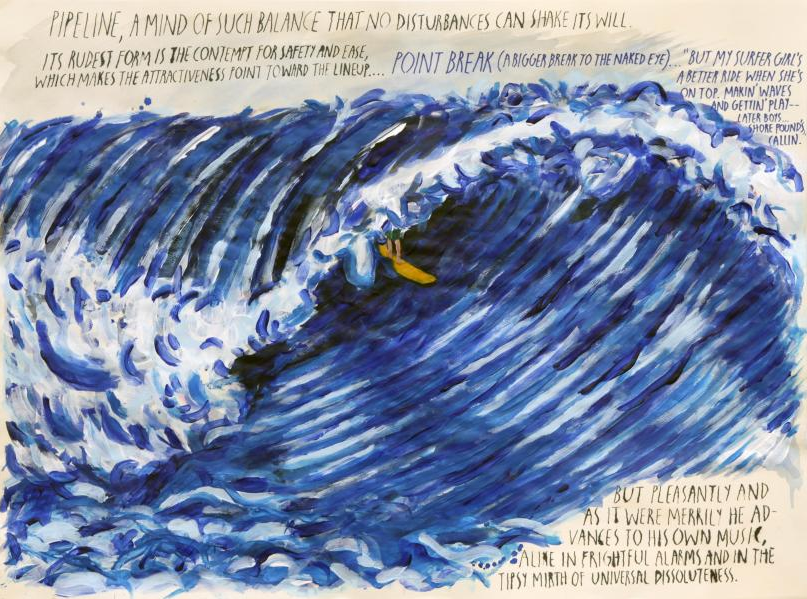 PIPELINE, A MIND OF SUCH BALANCE THAT NO DISTURBANCES CAN SHAKE ITS WILL.
ITS RUDEST FORM IS THE CONTEMPT FOR SAFETY AND EASE,
WHICH MAKES THE ATTRACTIVENESS POINT TOWARD THE LINEUP....
POINT BREAK (A BIGGER BREAK TO THE NAKED EYE)... "BUT MY SURFER GIRL'S
A BETTER RIDE WHEN SHE'S
ON TOP. MAKIN' WAVES
AND GETTIN' PLAY--
LATER BOYS...
SHORE POUND'S
CALLIN.
BUT PLEASANTLY AND
AS IT WERE MERRILY HE AD-
VANCES TO HIS OWN MUSIC,
ALIKE IN FRIGHTFUL ALARMS AND IN THE
TIPSY MIRTH OF UNIVERSAL DISSOLUTENESS.